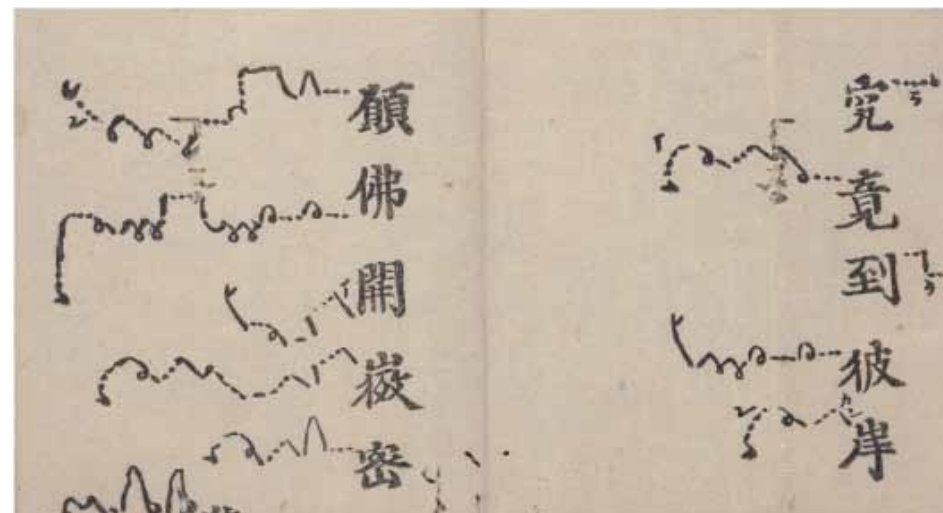 究竟到彼岸
願佛開微密